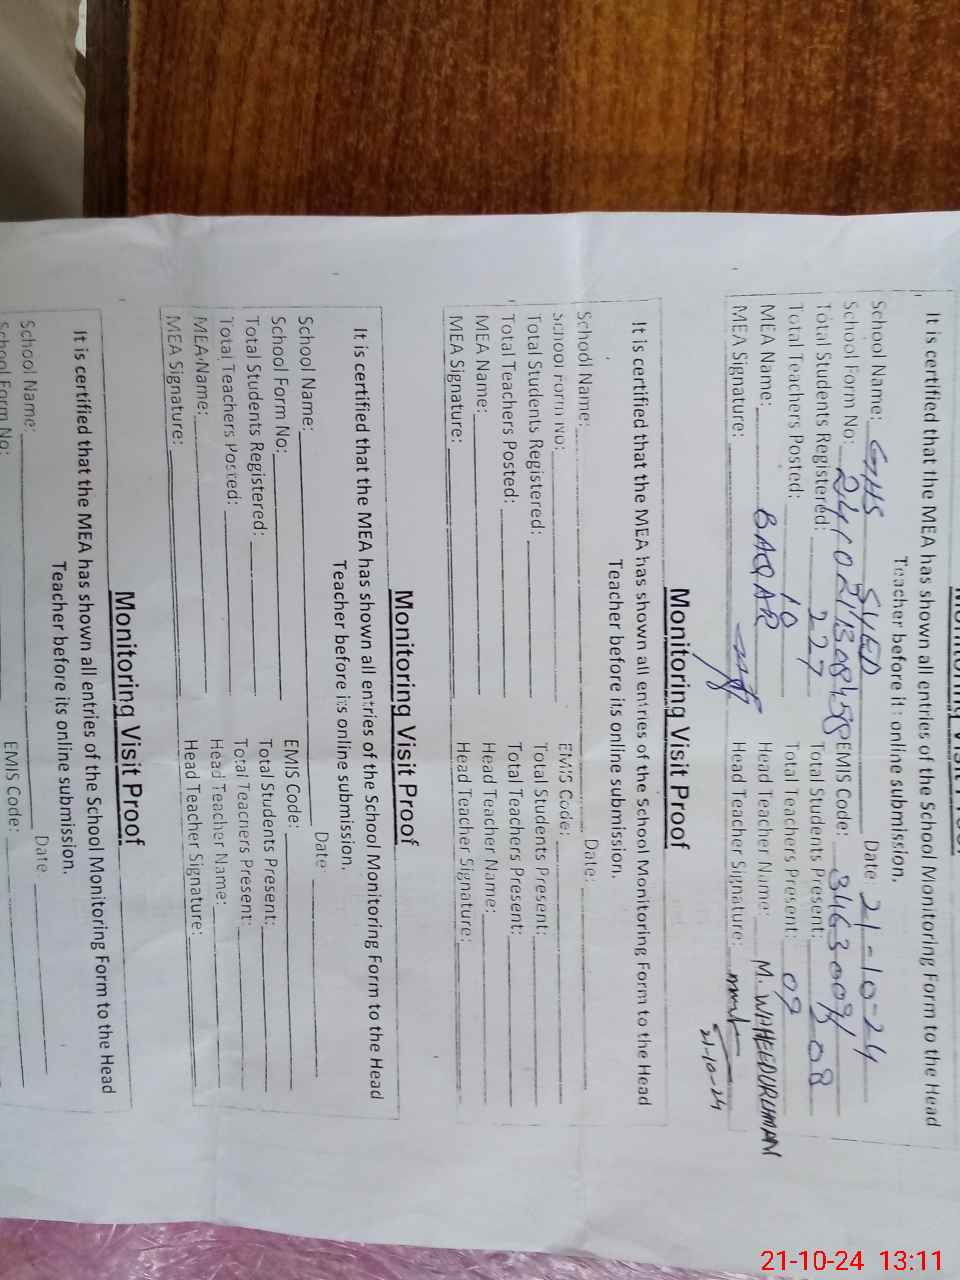 Monitoring Visit Proof
It is certified that the MEA has shown all entries of the School Monitoring Form to the Head
Teacher before its online submission.
School Name: GHS SYED Date: 21-10-24
School Form No: EMIS Code:
Total Students Registered: 227 Total Students Present: 208
Total Teachers Posted: 10 Total Teachers Present: 09
MEA Name: BAQAR Head Teacher Name: M. WAHEEDURUHMAN
MEA Signature: Head Teacher Signature:
21-10-24
Monitoring Visit Proof
It is certified that the MEA has shown all entries of the School Monitoring Form to the Head
Teacher before its online submission.
School Name: Date:
School Form No: EMIS Code:
Total Students Registered: Total Students Present:
Total Teachers Posted: Total Teachers Present:
MEA Name: Head Teacher Name:
MEA Signature: Head Teacher Signature:
Monitoring Visit Proof
It is certified that the MEA has shown all entries of the School Monitoring Form to the Head
Teacher before its online submission.
School Name: Date
School Form No: EMIS Code:
Total Students Registered: Total Students Present:
Total Teachers Posted: Total Teachers Present:
MEA Name: Head Teacher Name:
MEA Signature: Head Teacher Signature:
Monitoring Visit Proof
It is certified that the MEA has shown all entries of the School Monitoring Form to the Head
Teacher before its online submission.
School Name: Date
School Form No: EMIS Code:
21-10-24 13:11